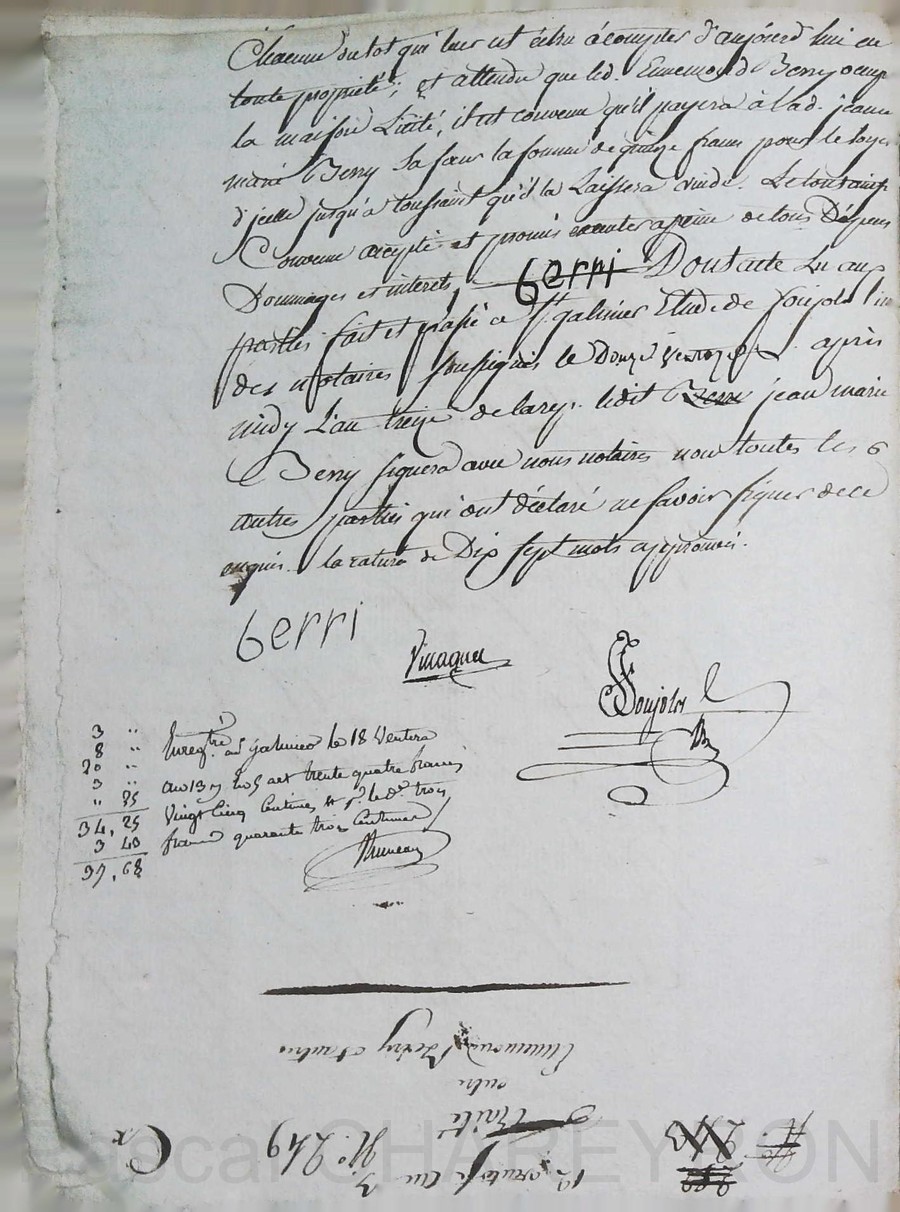 Chacune du lot qui leur est échu à compter d'aujourd'hui en
toute propriété; et attendu que led. Ennemond Berry occupe
la maison Litité, il est convenu qu'il payera à lad. jeanne
marie Berry sa sœur la somme de quinze francs pour le loyer
d'jcelle jusqu'à toussaint qu'il la laissera vuide. Le tout ainsi
Convenu accepté et promis executer a peine de tous Dépens
Dommages et interets, 6erri Dont acte Lu aux
parties fait et passé a St galmier Etude de Soujolos l'un
des notaires soussignés le Douze ventose après
midy L'an treize de la rep. ledit Berry jean marie
Berry signera avec nous notaires non toutes les 6
autres parties qui ont déclaré ne savoir signer de ce
enquis. la rature de Dix sept mots approuvée.
6erri
Vinagner
Soujolos
3 "
8 "
20 "
3 "
" 25
34, 25
3 43
37, 68
Enregtré à St galmier le 18 Ventose
an 13 reçu trente quatre francs
vingt cinq Centimes & pr. le De. trois
francs quarante trois Centimes
Bruneau
12 ventose an 13 No. 249
Traité
entre
Ennemond Berry et autres
Pascal CHAREYRON